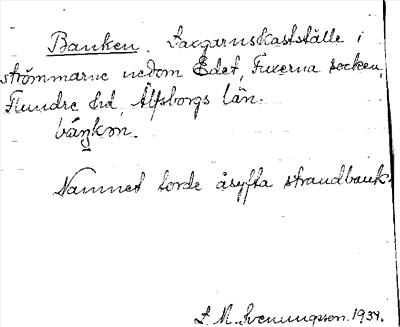 Banken. Laxgarnskastställe i
strömmarne nedom Edet, Fuxerna socken,
Flundre hd, Älfsborgs län.
båŋkən.
Namnet torde åsyfta strandbank.
S. M. Svenungsson. 1934.